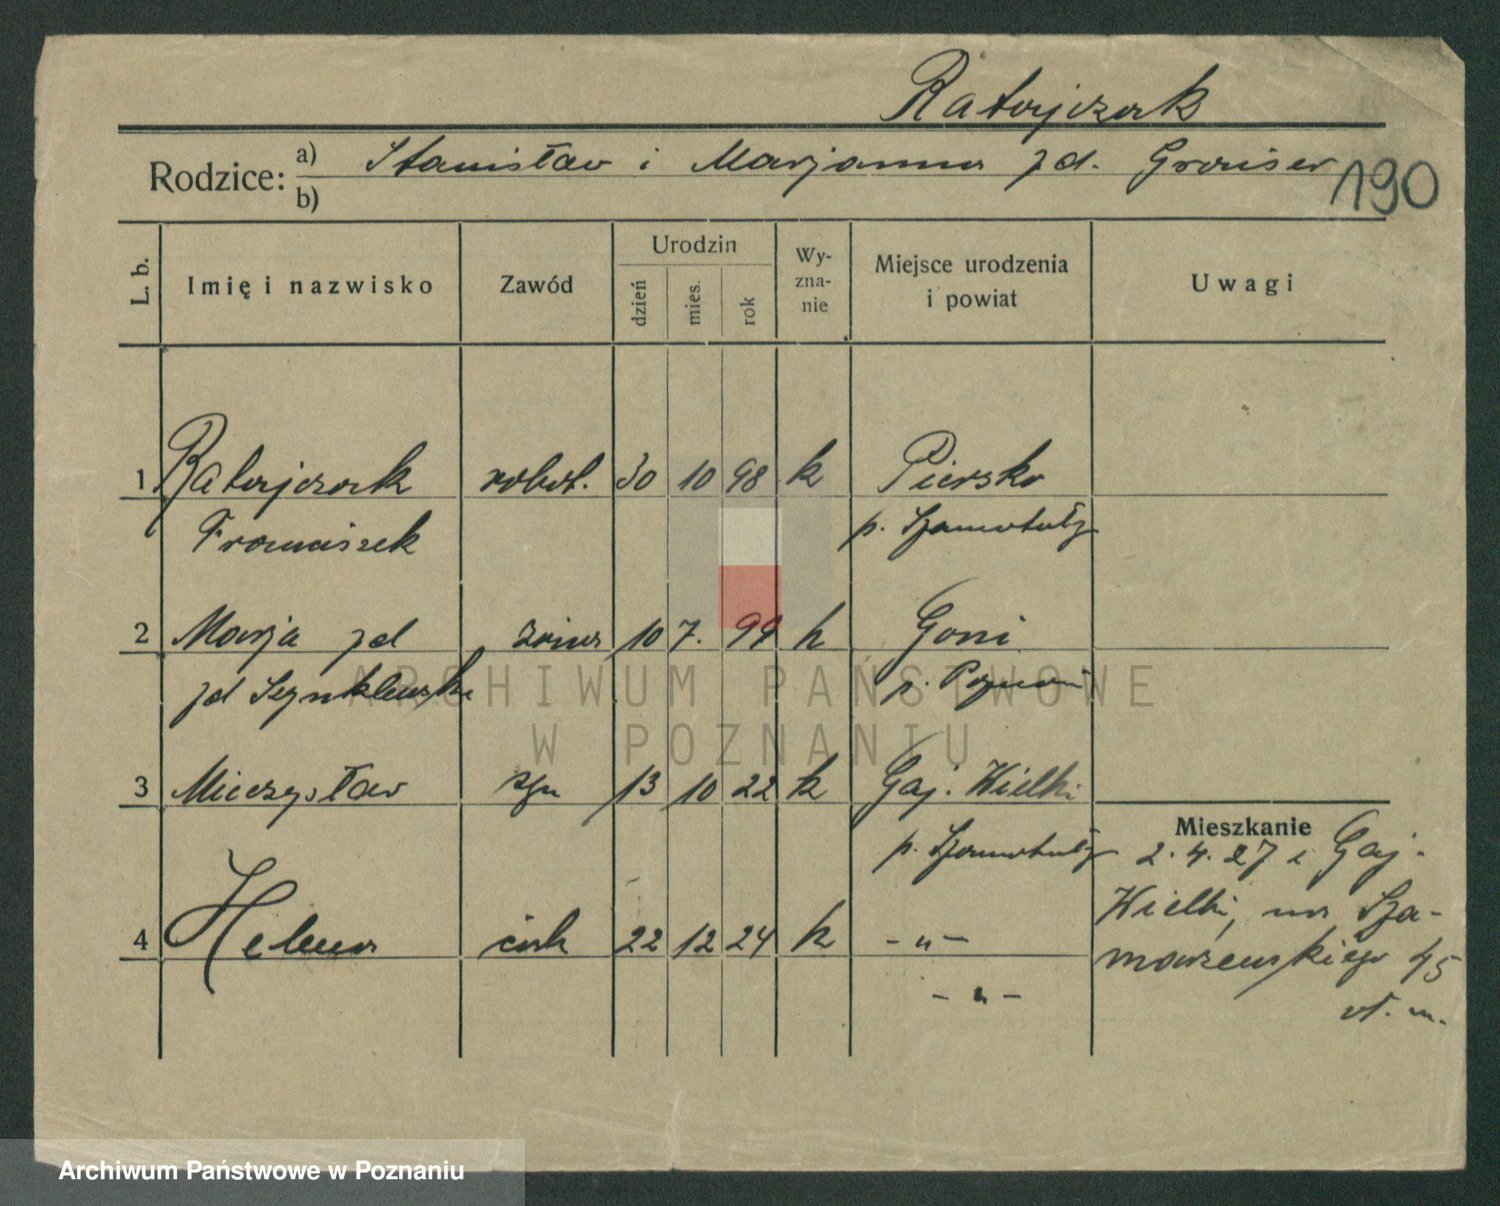 Ratajczak
Rodzice: a) Stanisław i Marjanna zd.
b)
190
L. b.
Imię i nazwisko
Zawód
Urodzin
dzień
mies.
rok
Wy-
zna-
nie
Miejsce urodzenia
i powiat
Uwagi
1 Ratajczak robot. 30 10 98 k Piersko
Franciszek p. Szamotuły
2 Marja zd żona 10 7. 99 k
zd p. Poznań
3 Mieczysław syn 13 10 22 k Gaj. Wielki
p. Szamotuły
4 Helena córk 22 12 24 k - „ -
- „ -
Mieszkanie
2.4.27 z Gaj.
Wielki, na Sza-
marzewskiego 45
wł. m.
ARCHIWUM PAŃSTWOWE
W POZNANIU
Archiwum Państwowe w Poznaniu